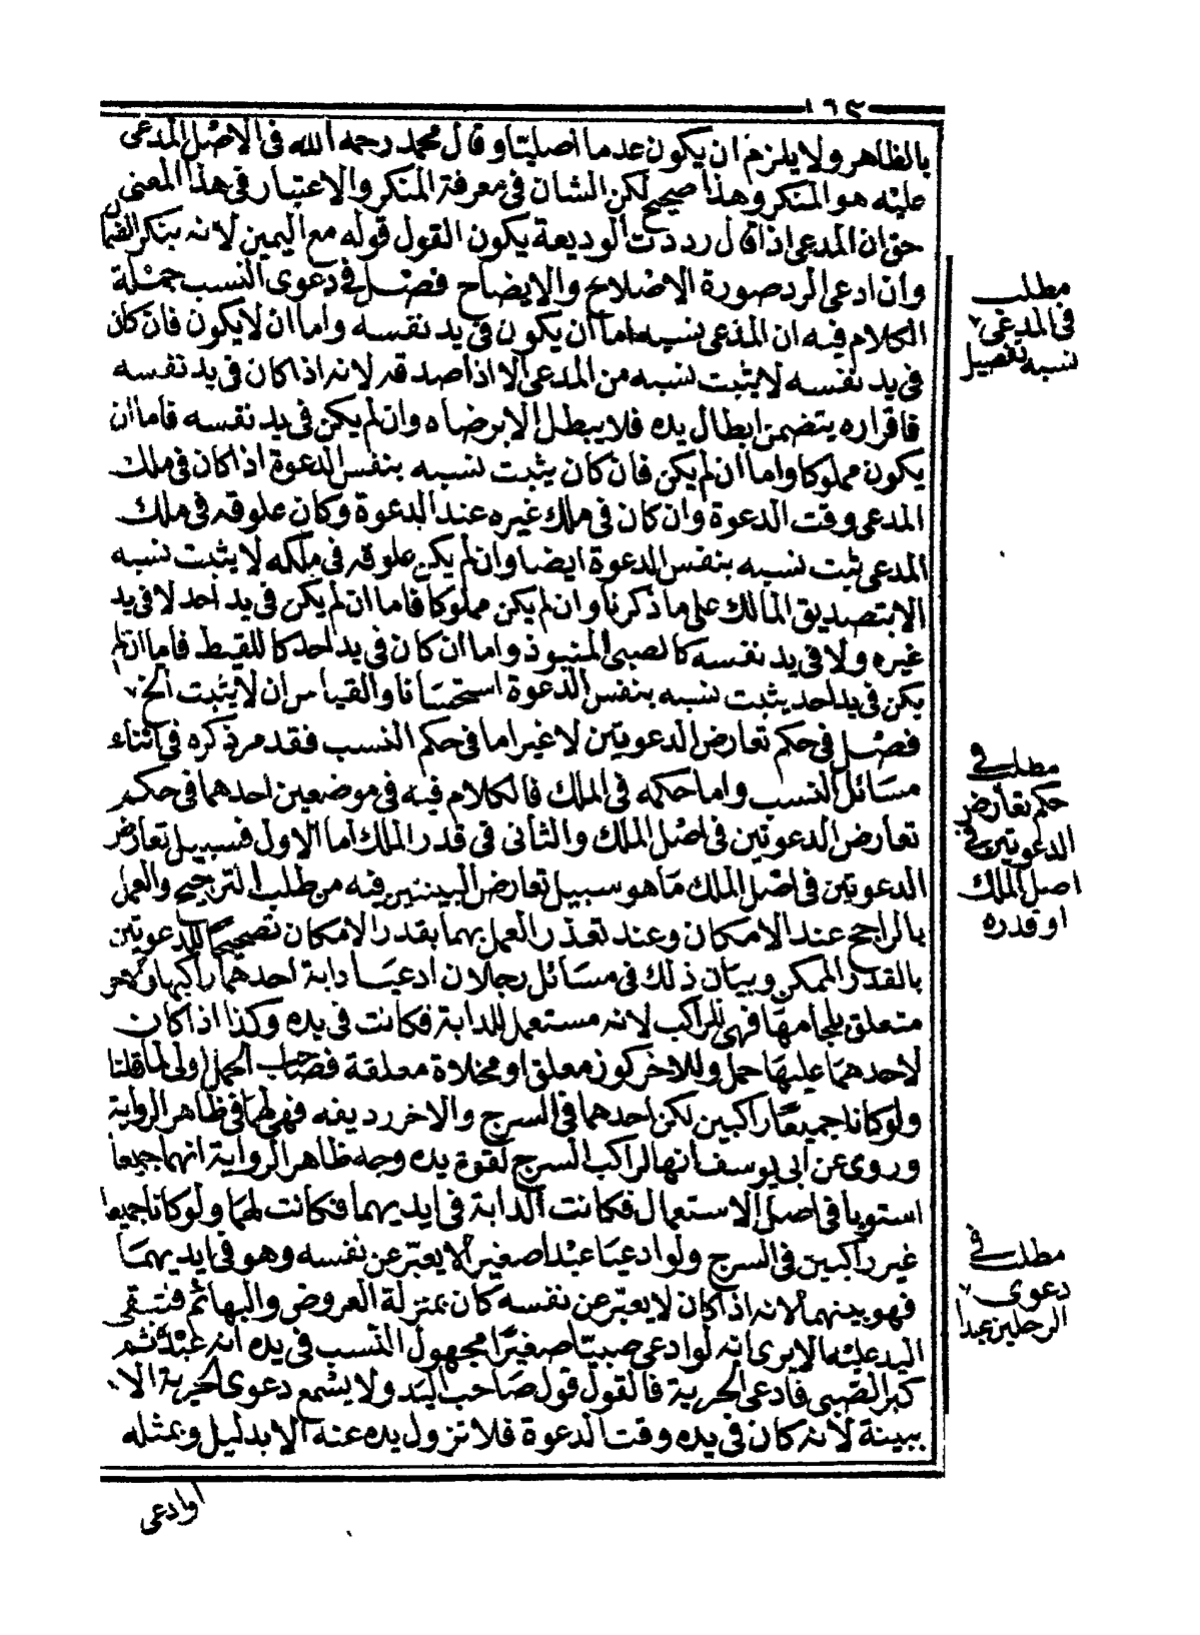 ١٦٣
بالظاهر ولا يلزم ان يكون عدما اصليا وقال محمد رحمه الله فى الاصل المدعى
عليه هو المنكر وهذا صحيح لكن الشان فى معرفة المنكر والاعتبار فى هذا المعنى
حق ان المدعى اذا قال رددت الوديعة يكون القول قوله مع اليمين لانه ينكر الضمان
وان ادعى الرد صورة الاصلاح والايضاح فصل فى دعوى النسب جملة
الكلام فيه ان المدعى نسبه اما ان يكون فى يد نفسه واما ان لايكون فان كان
فى يد نفسه لا يثبت نسبه من المدعى الا اذا صدقه لانه اذا كان فى يد نفسه
فاقراره يتضمن ابطال يده فلا يبطل الا برضاه وان لم يكن فى يد نفسه فاما ان
يكون مملوكا واما ان لم يكن فان كان يثبت نسبه بنفس الدعوة اذا كان فى ملك
المدعى وقت الدعوة وان كان فى ملك غيره عند الدعوة وكان علوقه فى ملك
المدعى ثبت نسبه بنفس الدعوة ايضا وان لم يكن علوقه فى ملكه لا يثبت نسبه
الا بتصديق المالك على ما ذكرنا وان لم يكن مملوكا فاما ان لم يكن فى يد احد لا فى يد
غيره ولا فى يد نفسه كالصبى المنبوذ واما ان كان فى يد احد كاللقيط فاما ان لم
يكن فى يد احد يثبت نسبه بنفس الدعوة استحسانا والقياس ان لا يثبت الخ
فصل فى حكم تعارض الدعوتين لا غير اما فى حكم النسب فقد مر ذكره فى اثناء
مسائل النسب واما حكمه فى الملك فالكلام فيه فى موضعين احدهما فى حكم
تعارض الدعوتين فى اصل الملك والثانى فى قدر الملك اما الاول فسبيل تعارض
الدعوتين فى اصل الملك ما هو سبيل تعارض البينتين فيه من طلب الترجيح والعمل
بالراجح عند الامكان وعند تعذر العمل بهما بقدر الامكان تصحيحا للدعوتين
بالقدر الممكن وبيان ذلك فى مسائل رجلان ادعيا دابة احدهما راكبها والاخر
متعلق بلجامها فهى للراكب لانه مستعمل للدابة فكانت فى يده وكذا اذا كان
لاحدهما عليها حمل وللاخر كوز معلق او مخلاة معلقة فصاحب الحمل اولى لما قلنا
ولو كانا جميعا راكبين لكن احدهما فى السرج والاخر رديفه فهى لهما فى ظاهر الرواية
وروى عن ابى يوسف انها لراكب السرج لقوة يده وجه ظاهر الرواية انهما جميعا
استويا فى اصل الاستعمال فكانت الدابة فى ايديهما فكانت لهما ولو كانا جميعا
غير راكبين فى السرج ولو ادعيا عبدا صغيرا لا يعبر عن نفسه وهو فى ايديهما
فهو بينهما لانه اذا كان لا يعبر عن نفسه كان بمنزلة العروض والبهائم فتبقى
اليد عليه الا يرى انه لو ادعى صبيا صغيرا مجهول النسب فى يده انه عبده ثم
كبر الصبى فادعى الحرية فالقول قول صاحب اليد ولا يسمع دعوى الحرية الا
ببينة لانه كان فى يده وقت الدعوة فلا تزول يده عنه الا بدليل وبمثله
او ادعى
مطلب
فى المدعى
نسبه تفصيل
مطلب فى
حكم تعارض
الدعوتين فى
اصل الملك
او قدره
مطلب فى
دعوى
الرجلين عبدا